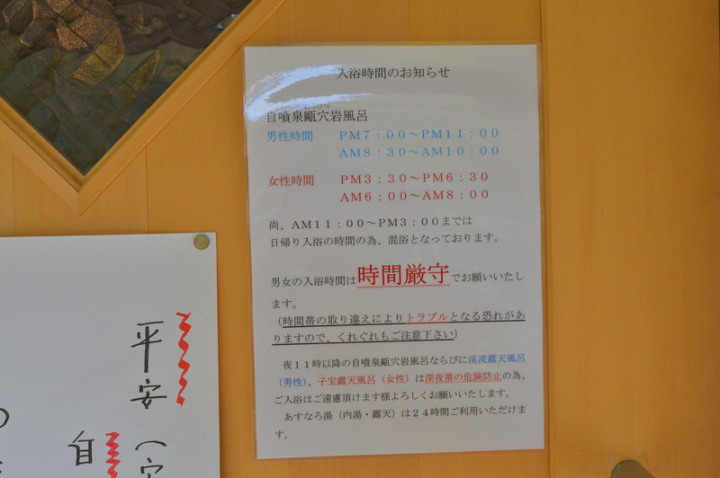 入浴時間のお知らせ
自噴泉甌穴岩風呂
男性時間 PM7:00~PM11:00
AM8:30~AM10:00
女性時間 PM3:30~PM6:30
AM6:00~AM8:00
尚、AM11:00~PM3:00までは
日帰り入浴の時間の為、混浴となっております。
男女の入浴時間は時間厳守でお願いいたし
ます。
(時間帯の取り違えによりトラブルとなる恐れがあ
りますので、くれぐれもご注意下さい)
夜11時以降の自噴泉甌穴岩風呂ならびに湯流露天風呂
(男性)、子宝露天風呂(女性)は深夜帯の危険防止の為、
ご入浴はご遠慮頂けます様よろしくお願いいたします。
あすなろ湯(内湯・露天)は24時間ご利用いただけま
す。
平安(
自